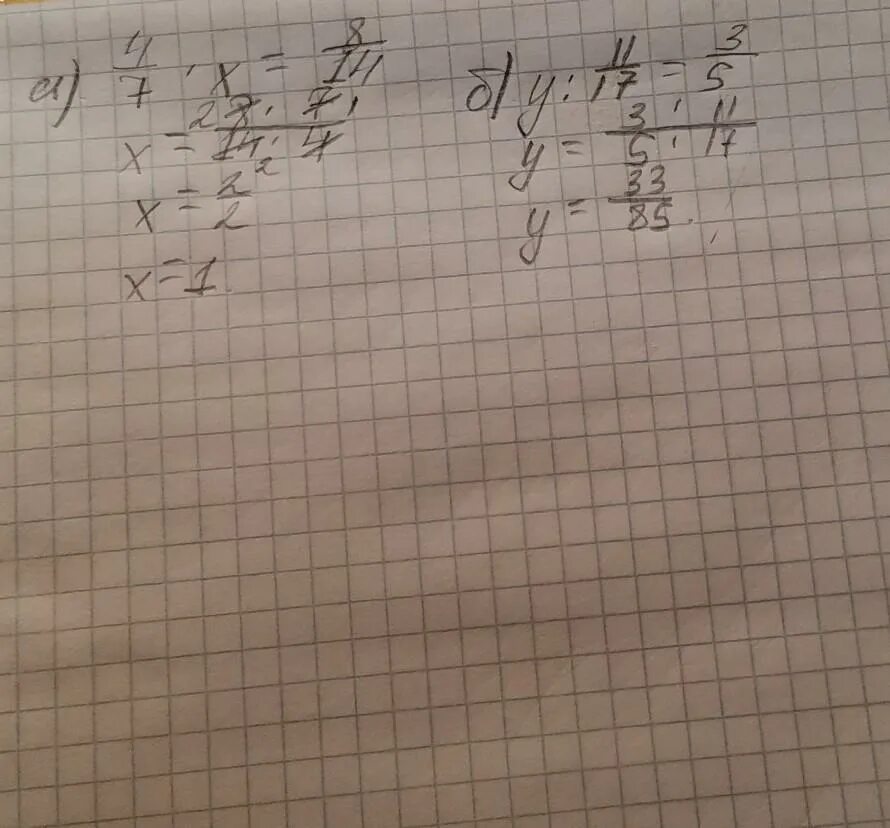 а) 4/7 · x = 8/14
x = 8 · 7 / 14 · 4
x = 2/2
x = 1
б) y : 11/17 = 3/5
y = 3 · 11 / 5 · 17
y = 33/85